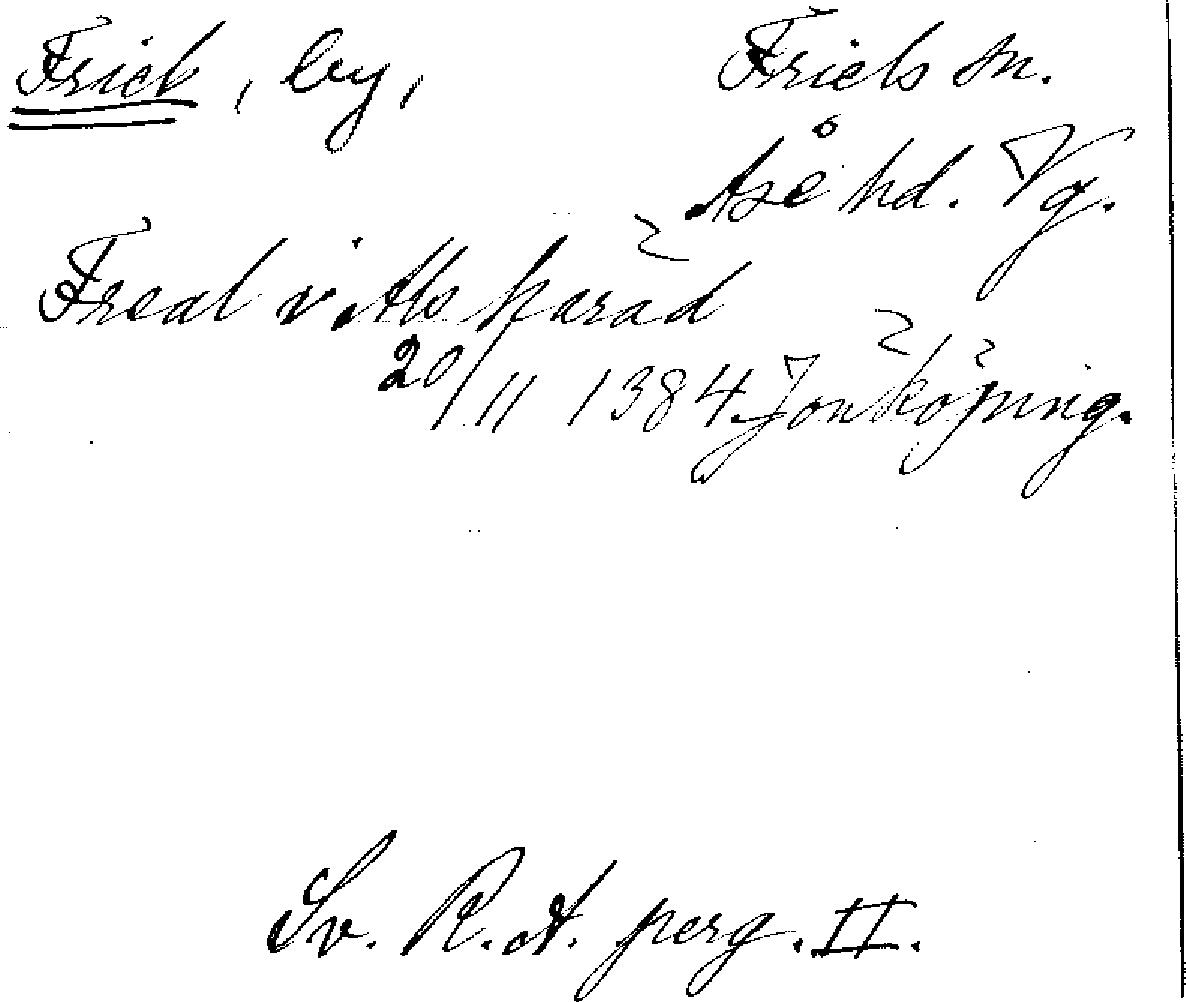 Friel, by, Friels sn.
Åse hd. Vg.
Freal i Als härad
20/11 1384 Jönköping.
Sv. R.A. perg. II.